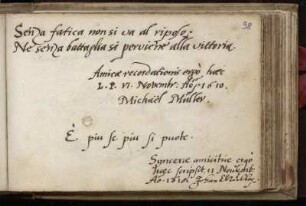 38
Senza fatica non si va al riposo:
Ne senza battaglia si perviene alla vittoria.
Amicæ recordationis ergò hæc
L. P. VI. Novembr. Aõ. 1610.
Michaël Müller.
È piu se piu si puote.
Synceræ amicitiæ ergò
hæc scripsit 13 Novemb.
Aõ. 1610.